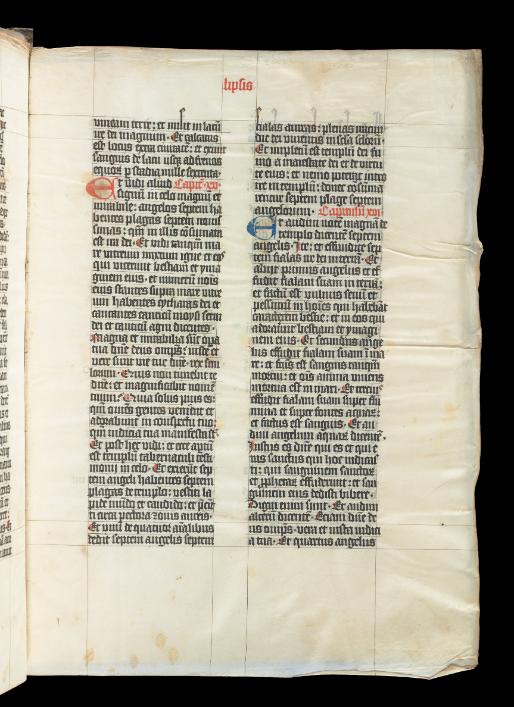 lipsis
vineam terre: et misit in lacū
ire dei magnum. Et calcatus
est locus extra ciuitatē: et exiuit
sanguis de lacu usq; ad frenos
equoꝝ p stadia mille sexcenta.
Et vidi aliud Capit. xv.
signū in celo magnū et
mirabile: angelos septem ha
bentes plagas septem nouis
simas: qm̄ in illis cōsumata
est ira dei. Et vidi tanquā ma
re vitreum mixtum igne et eos
qui vicerunt bestiam et yma
ginem eius. et numerū nōis
eius stantes supra mare vitre
um habentes cytharas dei et
cantantes canticū moysi serui
dei et canticū agni dicentes.
Magna et mirabilia sūt opa
tua dn̄e deus omps: iuste et
vere sunt vie tue dn̄e rex secu
lorum. Quis non timebit te
dn̄e: et magnificabit nomē
tuum. Quia solus pius es:
qm̄ om̄es gentes venient et
adorabunt in conspectu tuo:
qm̄ iudicia tua manifesta sūt.
Et post hec vidi: et ecce aptū
est templū tabernaculi testi
monij in celo. Et exierūt sep
tem angeli habentes septem
plagas de templo: vestiti la
pide mūdo et candido: et p̄cīc
ti circa pectora zonis aureis.
Et vnū de quatuor aīalibus
dedit septem angelis septem
fialas aureas: plenas iracun
die dei viuentis in secla seclorū.
Et impletū est templū dei fu
mo a maiestate dei et de virtu
te eius: et nemo poterat intro
ire in templū: donec cōsūma
rentur septem plage septem
angelorum. Capitulū xvi.
Et audiui vocē magnā de
templo dicentē septem
angelis. Ite: et effundite sep
tem fialas ire dei in terrā. Et
abijt primus angelus et ef
fudit fialam suam in terrā:
et factū est vulnus seuū et
pessimū in hoīes qui habebāt
caracterem bestie: et in eos qui
adorauerūt bestiam et ymagi
nem eius. Et secundus ange
lus effudit fialam suam ī ma
re: et factus est sanguis tanquā
mortui: et oīs anima viuens
mortua est in mari. Et tercius
effudit fialam suam super flu
mina et super fontes aquaꝝ:
et factus est sanguis. Et au
diui angelum aquaꝝ dicentē.
Iustus es dn̄e qui es et qui e
ras sanctus qui hec iudicas
ti: qui sanguinem sanctoꝝ
et p̄phetaꝝ effuderunt: et san
guinem eius dedisti bibere.
Digni enim sunt. Et audiui
alterū dicentē. Etiam dn̄e de
us omps: vera et iusta iudici
a tua. Et quartus angelus